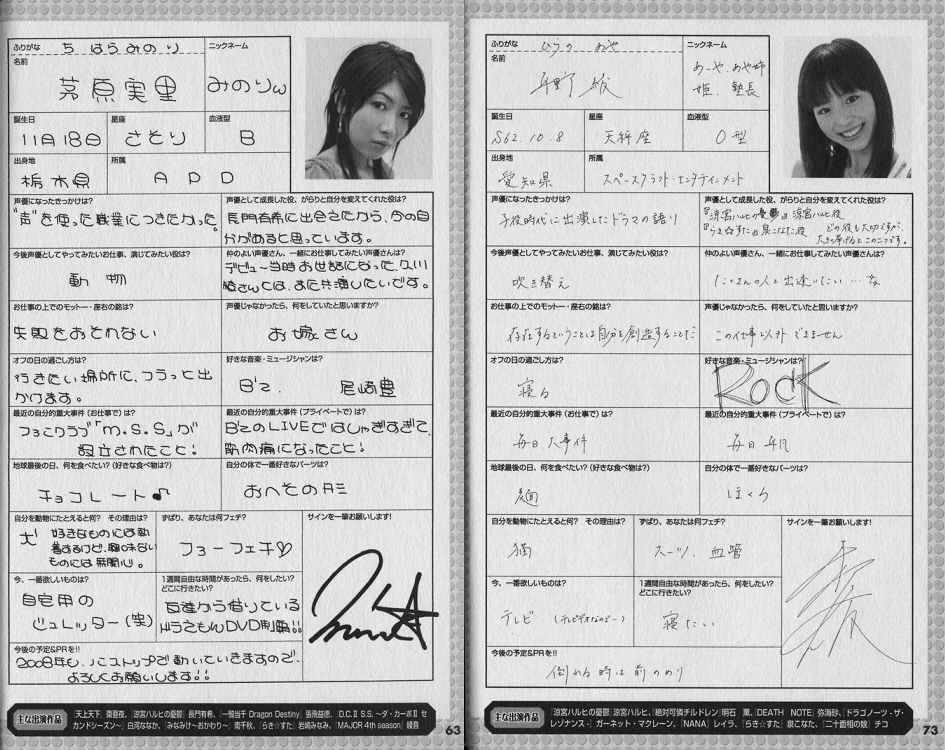 ふりがな ちはらみのり
名前
茅原実里
ニックネーム
みのりん
誕生日
11月18日
星座
さそり
血液型
B
出身地
栃木県
所属
APD
声優になったきっかけは?
"声"を使った職業につきたかった。
声優として成長した役、がらりと自分を変えてくれた役は?
長門有希に出会えたから、今の自
分があると思っています。
今後声優としてやってみたいお仕事、演じてみたい役は?
動物
仲のよい声優さん、一緒にお仕事してみたい声優さんは?
デビュー当時お世話になった、久川
綾さんとは、また共演したいです。
お仕事の上でのモットー・座右の銘は?
失敗をおそれない
声優じゃなかったら、何をしていたと思いますか?
お嫁さん
オフの日の過ごし方は?
行きたい場所に、フラっと出
かけます。
好きな音楽・ミュージシャンは?
B'z. 尾崎豊
最近の自分的重大事件(お仕事で)は?
ファンクラブ「m.s.s」が
設立されたこと!
最近の自分的重大事件(プライベートで)は?
B'zのLIVEではしゃぎすぎて、
筋肉痛になったこと!
地球最後の日、何を食べたい?(好きな食べ物は?)
チョコレート♪
自分の体で一番好きなパーツは?
おへその形
自分を動物にたとえると何? その理由は?
犬 好きなものには執
着するけど、興味ない
ものには無関心。
ずばり、あなたは何フェチ?
フェチ♡
サインを一筆お願いします!
今、一番欲しいものは?
自宅用の
ジュレッター(笑)
1週間自由な時間があったら、何をしたい?
どこに行きたい?
から借りている
ドラえもんDVD制覇!!
今後の予定&PRを!!
2008年も、ノンストップで動いていきますので、
よろしくお願いします!!
主な出演作品
「天上天下」棗亜夜、「涼宮ハルヒの憂鬱」長門有希、「一騎当千 Dragon Destiny」張飛益徳、「D.C.Ⅱ S.S.〜ダ・カーポⅡ セ
カンドシーズン〜」白河ななか、「みなみけ〜おかわり〜」南千秋、「らき☆すた」岩崎みなみ、「MAJOR 4th season」綾音
63
ふりがな ひらの あや
名前
平野綾
ニックネーム
あーや、あや姉
姫、塾長
誕生日
S62.10.8
星座
天秤座
血液型
O型
出身地
愛知県
所属
スペースクラフト・エンタテインメント
声優になったきっかけは?
子役時代に出演したドラマの語り
声優として成長した役、がらりと自分を変えてくれた役は?
『涼宮ハルヒの憂鬱』涼宮ハルヒ役
『らき☆すた』泉こなた役
どの役も大切ですが、
大きく挙げるとこの二つです。
今後声優としてやってみたいお仕事、演じてみたい役は?
吹き替え
仲のよい声優さん、一緒にお仕事してみたい声優さんは?
たくさんの人と出逢いたい…な
お仕事の上でのモットー・座右の銘は?
存在するということは自分を創造することだ
声優じゃなかったら、何をしていたと思いますか?
この仕事以外できません
オフの日の過ごし方は?
寝る
好きな音楽・ミュージシャンは?
ROCK
最近の自分的重大事件(お仕事で)は?
毎日大事件
最近の自分的重大事件(プライベートで)は?
毎日平凡
地球最後の日、何を食べたい?(好きな食べ物は?)
麺
自分の体で一番好きなパーツは?
ほくろ
自分を動物にたとえると何? その理由は?
猫
ずばり、あなたは何フェチ?
スーツ、血管
サインを一筆お願いします!
今、一番欲しいものは?
テレビ
1週間自由な時間があったら、何をしたい?
どこに行きたい?
寝たい
今後の予定&PRを!!
倒れる時は前のめり
主な出演作品
「涼宮ハルヒの憂鬱」涼宮ハルヒ、「絶対可憐チルドレン」明石 薫、「DEATH NOTE」弥海砂、「ドラゴノーツ-ザ・
レゾナンス-」ガーネット・マクレーン、「NANA」レイラ、「らき☆すた」泉こなた、「二十面相の娘」チコ
73